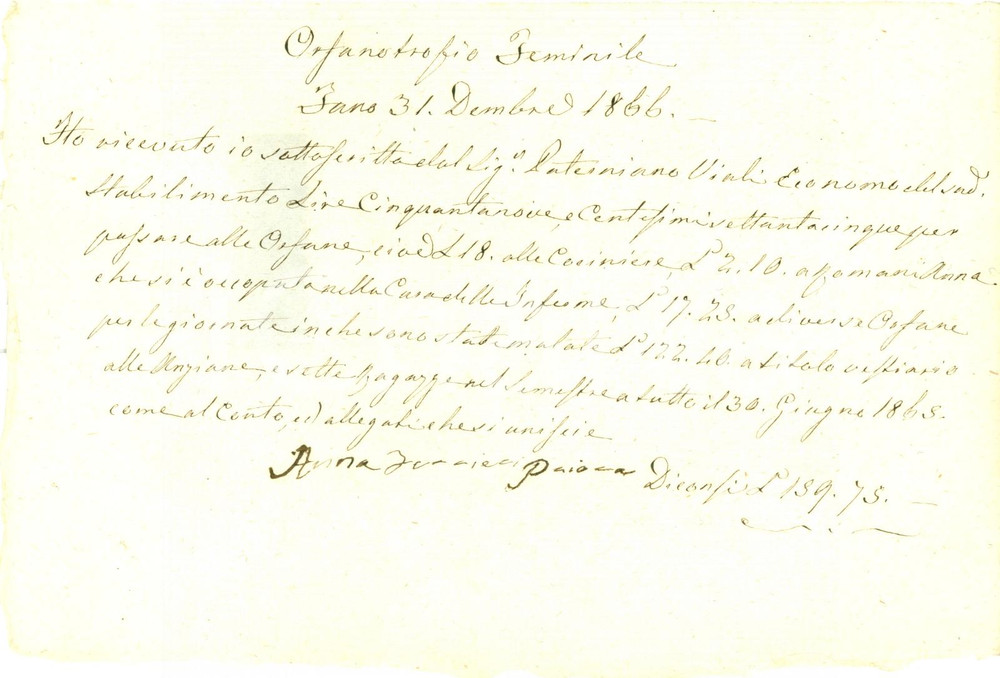 Orfanotrofio Feminile
Fano 31. Dembre 1866. —
Ho ricevuto io sottoscritta dal Sig.r Paterniano Viali Economo del sud.
Stabilimento Lire Cinquantanove, e Centesimi settantacinque per
passare alle Orfane, cioè £ 18. alle Cociniere, £ 2.10. a Romani Anna
che si è occupata nella Casa delle Inferme, £ 17.25. a diverse Orfane
per le giornate in che sono state malate £ 122.40. a titolo vestiario
alle Anziane, e sette Ragazze nel Semestre a tutto il 30. Giugno 1865.
come al Conto, ed allegati che si uniscie
Anna Priora Diconsi £ 159.75. —